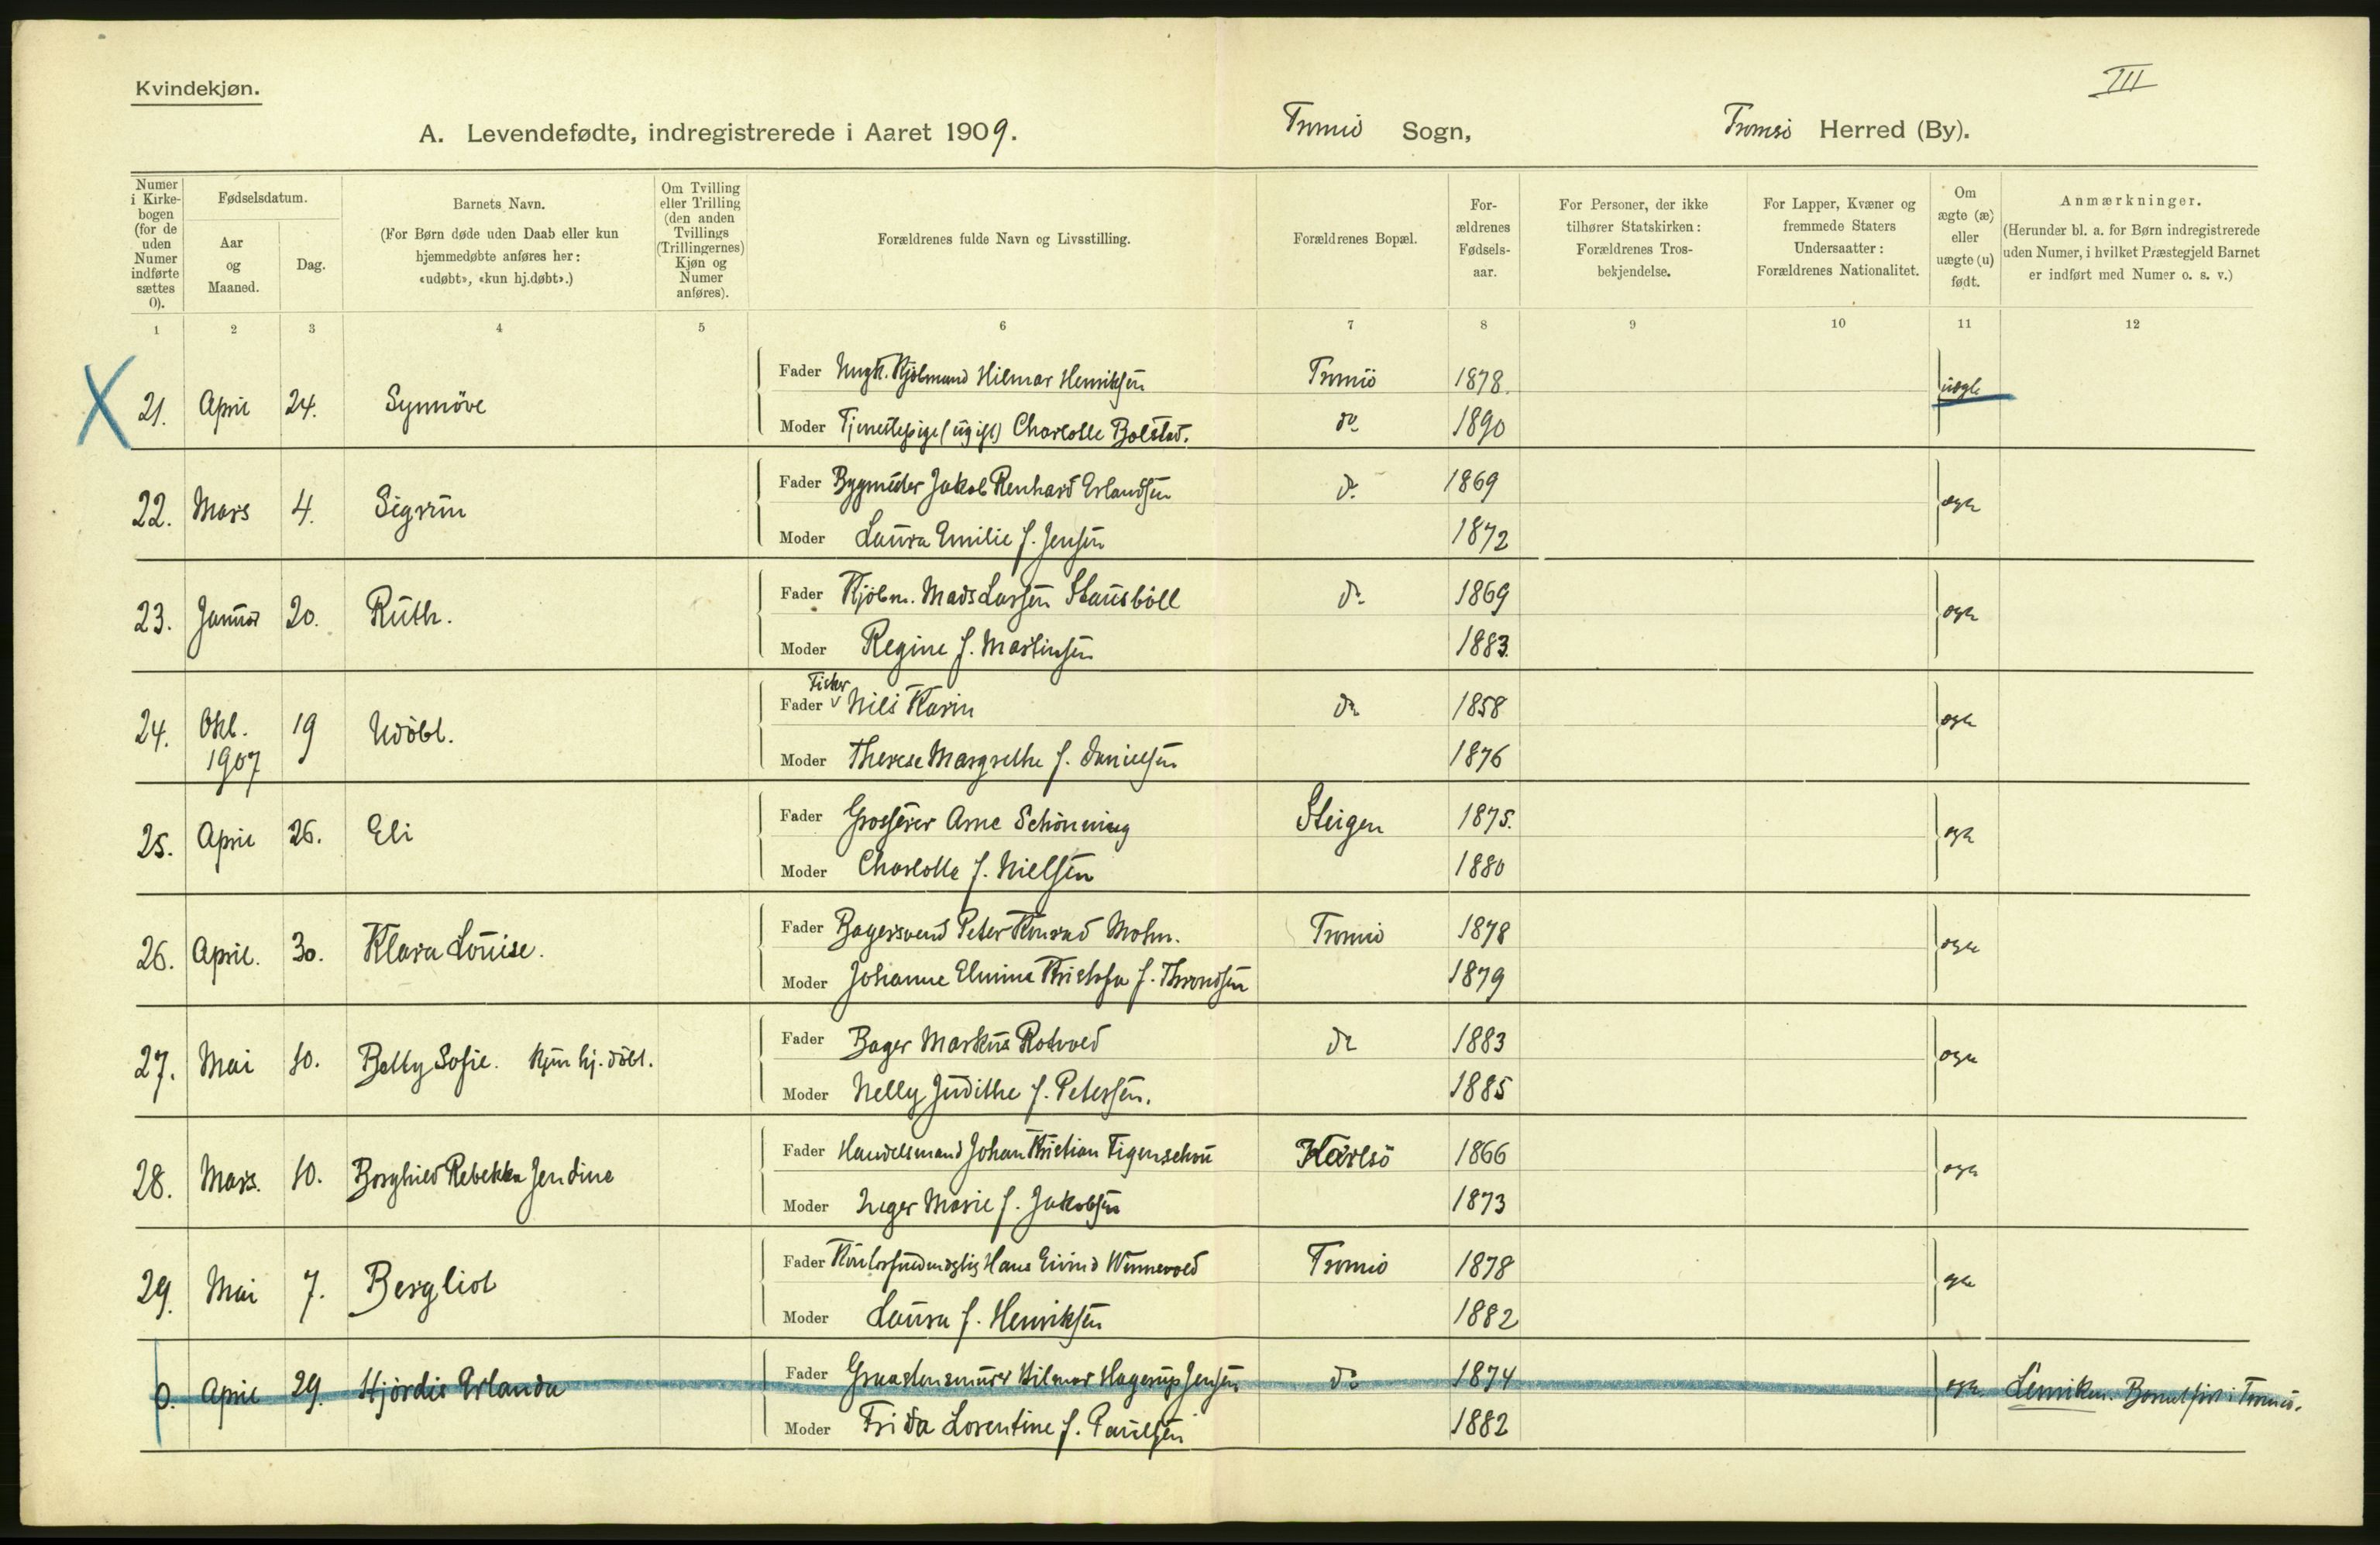 Kvindekjøn.
III
A. Levendefødte, indregistrerede i Aaret 1909. Tromsö Sogn, Tromsö Herred (By).
Numer i Kirkebogen (for de uden Numer indførte sættes 0).
Fødselsdatum.
Aar og Maaned.
Dag.
Barnets Navn.
(For Børn døde uden Daab eller kun hjemmedøbte anføres her: «udøbt», «kun hj.døbt».)
Om Tvilling eller Trilling (den anden Tvillings (Trillingernes) Kjøn og Numer anføres).
Forældrenes fulde Navn og Livsstilling.
Forældrenes Bopæl.
For-ældrenes Fødsels-aar.
For Personer, der ikke tilhører Statskirken: Forældrenes Tros-bekjendelse.
For Lapper, Kvæner og fremmede Staters Undersaatter: Forældrenes Nationalitet.
Om ægte (æ) eller uægte (u) født.
Anmærkninger.
(Herunder bl. a. for Børn indregistrerede uden Numer, i hvilket Præstegjeld Barnet er indført med Numer o. s. v.)
1 2 3 4 5 6 7 8 9 10 11 12
X 21. April 24. Synnöve Fader Ungk. Kjöbmand Hilmar Henriksen Tromsö 1878. uægte
Moder Tjenestepige (ugift) Charlotte Bolstad. do 1890
22. Mars 4. Sigrun Fader Bygmester Jakob Renhard Erlandsen do 1869 ægte
Moder Laura Emilie f. Jensen 1872
23. Januar 20. Ruth. Fader Kjöbm. Mads Larsen Stausböll do 1869 ægte
Moder Regine f. Martinsen 1883.
24. Okt. 1907 19 Udöbt. Fader Fisker Nils Karin do 1858 ægte
Moder Therese Margrethe f. Danielsen 1876
25. April 26. Eli Fader Grosserer Arne Schönning Steigen 1875. ægte
Moder Charlotte f. Nielsen 1880
26. April. 30. Klara Louise. Fader Bagersvend Peter Konrad Mohn. Tromsö 1878 ægte
Moder Johanne Elmina f. Throndsen 1879
27. Mai 10. Betty Sofie. Kun hj. döbt. Fader Bager Markus Rotvold do 1883 ægte
Moder Nelly Judithe f. Petersen. 1885
28. Mars. 10. Borghild Rebekka Jendine Fader Handelsmand Johan Kristian Figenschou Karlsö 1866 ægte
Moder Inger Marie f. Jakobsen 1873
29. Mai 7. Bergliot Fader Kontorfuldmægtig Hans Eivind Wennevold Tromsö 1878 ægte
Moder Laura f. Henriksen 1882
0. April 29. Hjördis Erlanda Fader Graastensmurer Hilmar Hagerup Jensen do 1874 ægte Lenviken. Barnet födt i Tromsö.
Moder Frida Lorentine f. Paulsen 1882